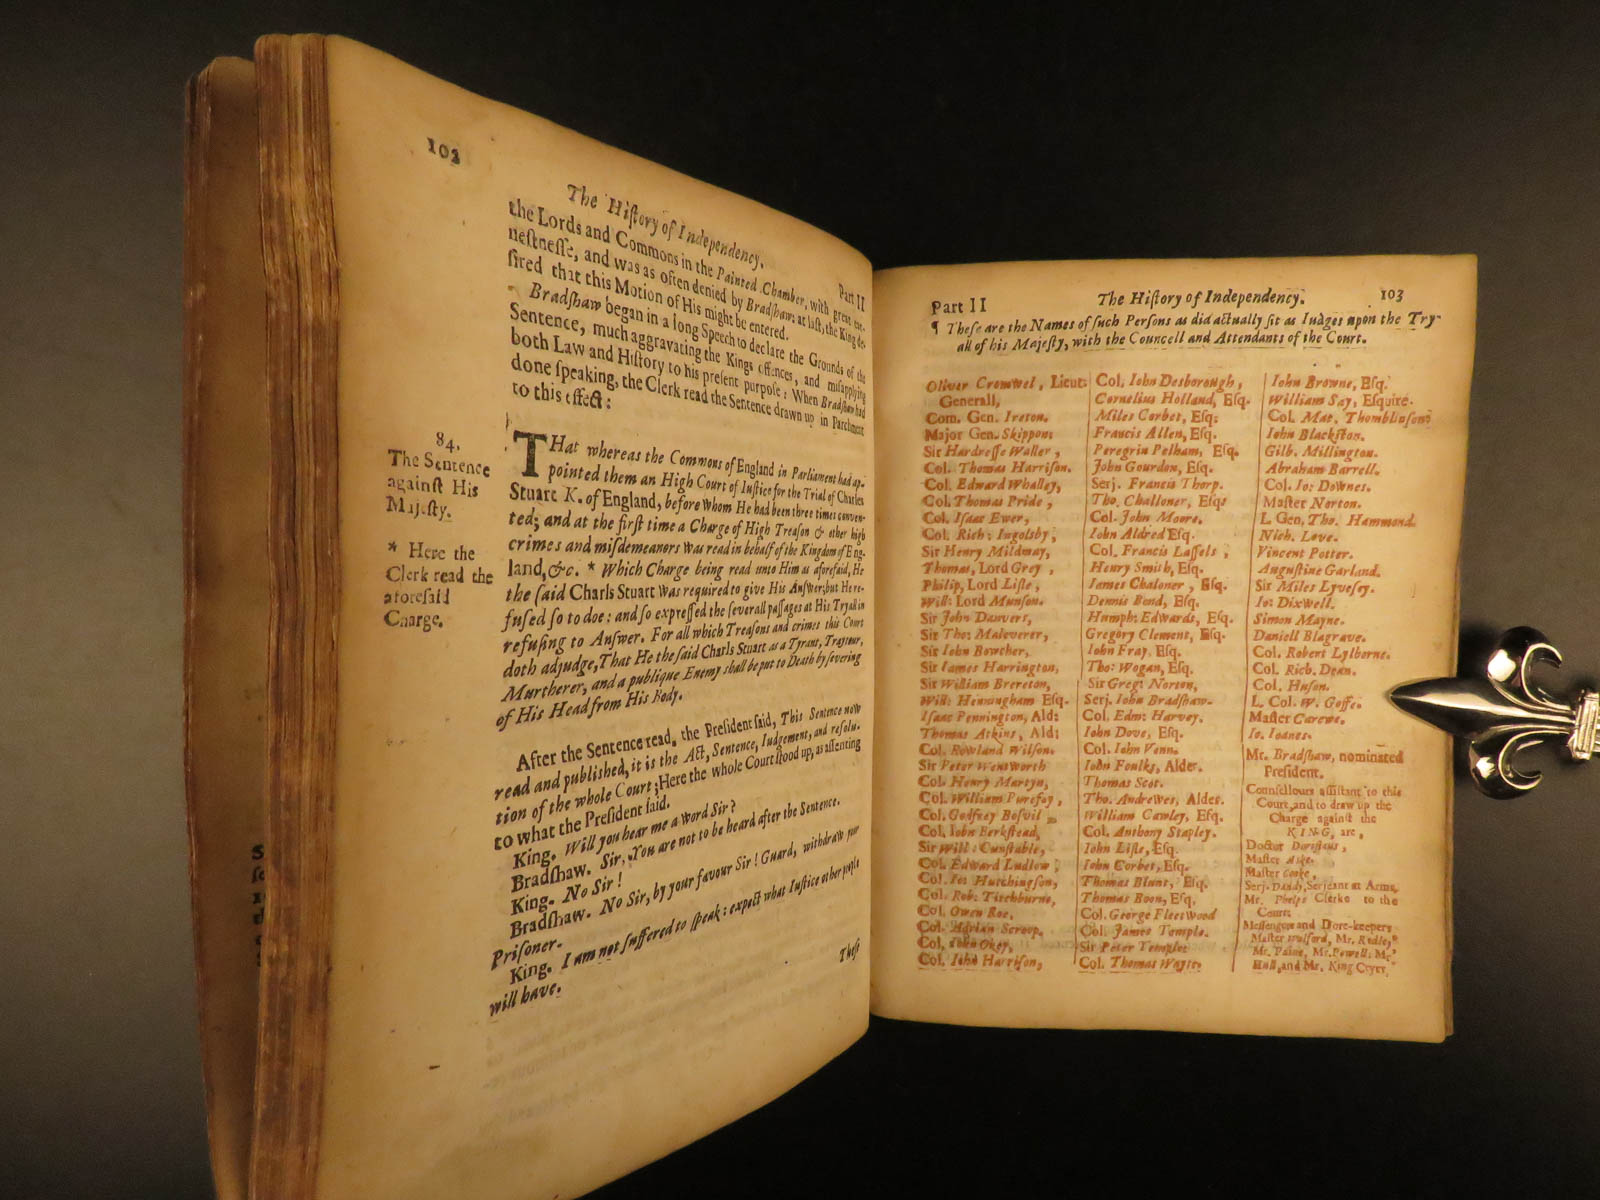 102
The Hiſtory of Independency.
Part II
the Lords and Commons in the Painted Chamber, with great, ear-
neſtneſſe, and was as often denied by Bradſhaw: at laſt, the King de-
ſired that this Motion of His might be entered.
Bradſhaw began in a long Speech to declare the Grounds of the
Sentence, much aggravating the Kings offences, and miſapplying
both Law and Hiſtory to his preſent purpoſe: When Bradſhaw had
done ſpeaking, the Clerk read the Sentence drawn up in Parchment
to this effect:
84.
The Sentence
againſt His
Majeſty.
* Here the
Clerk read the
aforeſaid
Charge.
THat whereas the Commons of England in Parliament had ap-
pointed them an High Court of Iuſtice for the Trial of Charles
Stuart K. of England, before whom He had been three times conven-
ted; and at the firſt time a Charge of High Treaſon & other high
crimes and miſdemeanors was read in behalf of the Kingdom of Eng-
land, &c. * Which Charge being read unto Him as aforeſaid, He
the ſaid Charls Stuart was required to give His Anſwer; but He re-
fuſed ſo to doe: and ſo expreſſed the ſeverall paſſages at His Tryall in
refuſing to Anſwer. For all which Treaſons and crimes this Court
doth adjudge, That He the ſaid Charls Stuart as a Tyrant, Traytour,
Murtherer, and a publique Enemy ſhall be put to Death by ſevering
of His Head from His Body.
After the Sentence read, the Preſident ſaid, This Sentence now
read and publiſhed, it is the Act, Sentence, Iudgement, and reſolu-
tion of the whole Court; Here the whole Court ſtood up, as aſſenting
to what the Preſident ſaid.
King. Will you hear me a word Sir?
Bradſhaw. Sir, You are not to be heard after the Sentence.
King. No Sir!
Bradſhaw. No Sir, by your favour Sir! Guard, withdraw your
Priſoner.
King. I am not ſuffered to ſpeak: expect what Iuſtice other people
will have.
Theſe
Part II
The Hiſtory of Independency.
103
¶ Theſe are the Names of ſuch Perſons as did actually ſit as Iudges upon the Try-
all of his Majeſty, with the Councell and Attendants of the Court.
Oliver Cromwel, Lieut:
Generall,
Com. Gen. Ireton.
Major Gen. Skippon:
Sir Hardreſſe Waller,
Col. Thomas Harriſon.
Col. Edward Whalley,
Col. Thomas Pride,
Col. Iſaac Ewer,
Col. Rich: Ingolsby,
Sir Henry Mildmay,
Thomas, Lord Grey,
Philip, Lord Liſle,
Will: Lord Munſon.
Sir John Danvers,
Sir Tho: Maleverer,
Sir Iohn Bowcher,
Sir Iames Harrington,
Sir William Brereton,
Will: Henningham Eſq.
Iſaac Pennington, Ald:
Thomas Atkins, Ald:
Col. Rowland Wilſon.
Sir Peter Wentworth
Col. Henry Martyn,
Col. William Purefoy,
Col. Godfrey Boſvil
Col. Iohn Berkſtead,
Sir Will: Cunſtable,
Col. Edward Ludlow,
Col. Io: Hutchingſon,
Col. Rob: Titchburne,
Col. Owen Roe,
Col. Adrian Scroop,
Col. John Okey,
Col. Iohn Harriſon,
Col. Iohn Desborough,
Cornelius Holland, Eſq.
Miles Corbet, Eſq:
Francis Allen, Eſq.
Peregrin Pelham, Eſq.
John Gourdon, Eſq.
Serj. Francis Thorp.
Tho. Challoner, Eſq:
Col. John Moore.
Iohn Aldred Eſq.
Col. Francis Laſſels,
Henry Smith, Eſq.
Iames Chaloner, Eſq.
Dennis Bond, Eſq.
Humph: Edwards, Eſq.
Gregory Clement, Eſq.
Iohn Fray, Eſq.
Tho: Wogan, Eſq.
Sir Greg: Norton,
Serj. Iohn Bradſhaw.
Col. Edm: Harvey.
Iohn Dove, Eſq.
Col. Iohn Venn.
Iohn Foulks, Alder.
Thomas Scot.
Tho. Andrewes, Alder.
William Cawley, Eſq.
Col. Anthony Stapley.
Iohn Liſle, Eſq.
Iohn Corbet, Eſq.
Thomas Blunt, Eſq.
Thomas Boon, Eſq.
Col. George Fleetwood
Col. James Temple.
Sir Peter Temple:
Col. Thomas Wayte.
Iohn Browne, Eſq.
William Say, Eſquire.
Col. Mat. Thomblinſon:
Iohn Blackſton.
Gilb. Millington.
Abraham Barrell.
Col. Io: Downes.
Maſter Norton.
L. Gen. Tho. Hammond.
Nich. Love.
Vincent Potter.
Auguſtine Garland.
Sir Miles Lyveſey.
Io: Dixwell.
Simon Mayne.
Daniell Blagrave.
Col. Robert Lylborne.
Col. Rich. Dean.
Col. Huſon.
L. Col. W. Goffe.
Maſter Carewe.
Io. Ioanes.
Mr. Bradſhaw, nominated
Preſident.
Counſellours aſſiſtant to this
Court, and to draw up the
Charge againſt the
KING, are,
Doctor Doriſlaus,
Maſter Aske.
Maſter Cooke,
Serj. Dandy, Serjeant at Arms.
Mr. Phelps Clerke to the
Court:
Meſſengers and Dore-keepers
Maſter Walford, Mr. Radley,
Mr. Paine, Mr. Powell: Mr
Hull, and Mr. King Cryer.